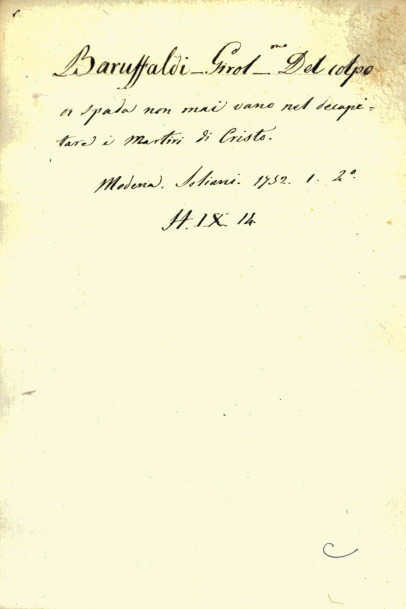 Baruffaldi - Girol.mo - Del colpo
di spada non mai vano nel decapi=
tare i Martiri di Cristo.
Modena. Soliani. 1752. 1. 2º.
H. IX 14